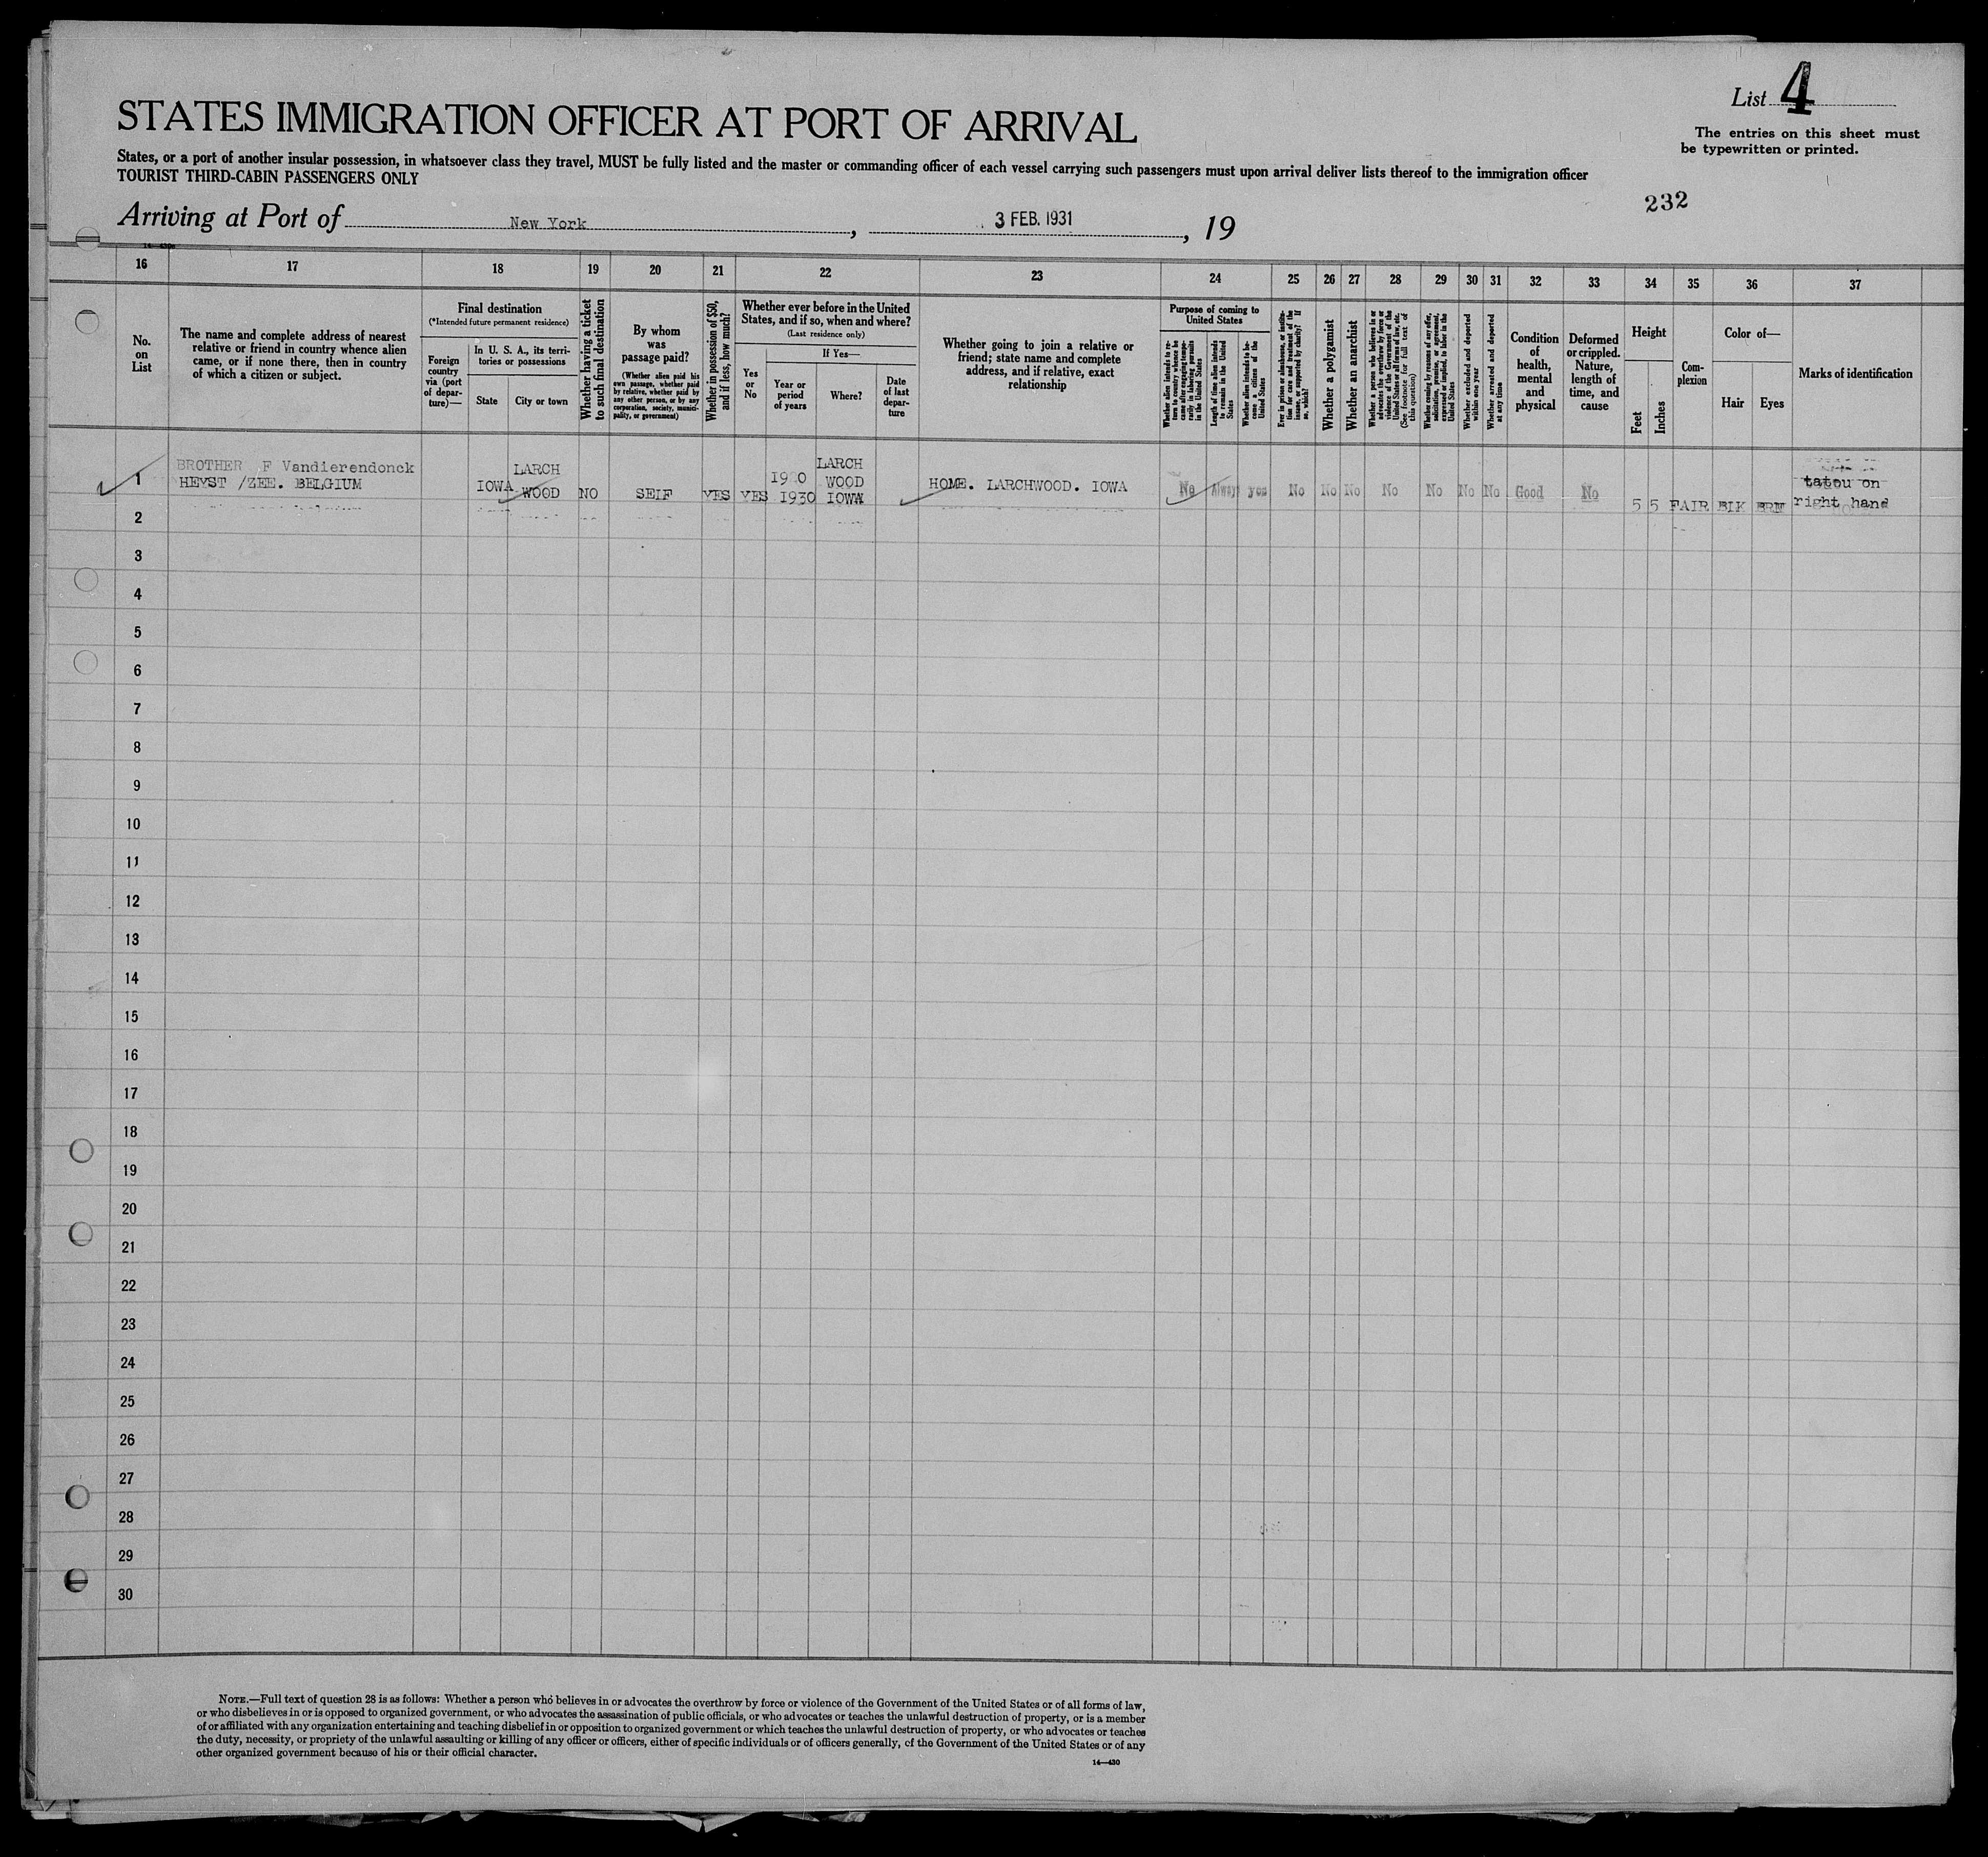 List 4
The entries on this sheet must
be typewritten or printed.
STATES IMMIGRATION OFFICER AT PORT OF ARRIVAL
States, or a port of another insular possession, in whatsoever class they travel, MUST be fully listed and the master or commanding officer of each vessel carrying such passengers must upon arrival deliver lists thereof to the immigration officer
TOURIST THIRD-CABIN PASSENGERS ONLY
232
Arriving at Port of New York, 3 FEB. 1931, 19
16 17 18 19 20 21 22 23 24 25 26 27 28 29 30 31 32 33 34 35 36 37
No.
on
List
The name and complete address of nearest
relative or friend in country whence alien
came, or if none there, then in country
of which a citizen or subject.
Final destination
(*Intended future permanent residence)
Foreign
country
via (port
of depar-
ture)—
In U. S. A., its terri-
tories or possessions
State
City or town
Whether having a ticket
to such final destination
By whom
was
passage paid?
(Whether alien paid his
own passage, whether paid
by relative, whether paid by
any other person, or by any
corporation, society, munici-
pality, or government)
Whether in possession of $50,
and if less, how much?
Whether ever before in the United
States, and if so, when and where?
(Last residence only)
Yes
or
No
If Yes—
Year or
period
of years
Where?
Date
of last
depar-
ture
Whether going to join a relative or
friend; state name and complete
address, and if relative, exact
relationship
Purpose of coming to
United States
Whether alien intends to re-
turn to country whence he
came after engaging tempo-
rarily in laboring pursuits
in the United States
Length of time alien intends
to remain in the United
States
Whether alien intends to be-
come a citizen of the
United States
Ever in prison or almshouse, or institu-
tion for care and treatment of the
insane, or supported by charity? If
so, which?
Whether a polygamist
Whether an anarchist
Whether a person who believes in or
advocates the overthrow by force or
violence of the Government of the
United States or all forms of law, etc.
(See footnote for full text of
this question)
Whether coming by reasons of any offer,
solicitation, promise, or agreement,
expressed or implied, to labor in the
United States
Whether excluded and deported
within one year
Whether arrested and deported
at any time
Condition
of
health,
mental
and
physical
Deformed
or crippled.
Nature,
length of
time, and
cause
Height
Feet
Inches
Com-
plexion
Color of—
Hair
Eyes
Marks of identification
1
BROTHER F Vandierendonck
HEYST /ZEE. BELGIUM
IOWA
LARCH
WOOD
NO
SELF
YES
YES
1930
LARCH
WOOD
IOWA
HOME. LARCHWOOD. IOWA
No
Always
yes
No
No
No
No
No
No
No
Good
No
5
5
FAIR
BLK
BRN
tatou on
right hand
2
3
4
5
6
7
8
9
10
11
12
13
14
15
16
17
18
19
20
21
22
23
24
25
26
27
28
29
30
NOTE.—Full text of question 28 is as follows: Whether a person who believes in or advocates the overthrow by force or violence of the Government of the United States or of all forms of law,
or who disbelieves in or is opposed to organized government, or who advocates the assassination of public officials, or who advocates or teaches the unlawful destruction of property, or is a member
of or affiliated with any organization entertaining and teaching disbelief in or opposition to organized government or which teaches the unlawful destruction of property, or who advocates or teaches
the duty, necessity, or propriety of the unlawful assaulting or killing of any officer or officers, either of specific individuals or of officers generally, of the Government of the United States or of any
other organized government because of his or their official character.
14—430